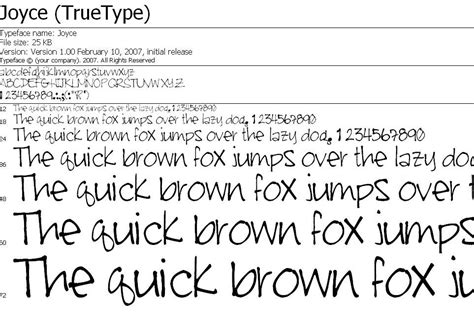 Joyce (TrueType)
Typeface name: Joyce
File size: 25 KB
Version: Version 1.00 February 10, 2007, initial release
Typeface © (your company). 2007. All Rights Reserved
abcdefghijklmnopqrstuvwxyz
ABCDEFGHIJKLMNOPQRSTUVWXYZ
1234567890
12 The quick brown fox jumps over the lazy dog. 1234567890
18 The quick brown fox jumps over the lazy dog. 1234567890
24 The quick brown fox jumps over the lazy dog. 1234567890
36 The quick brown fox jumps over the lazy dog
48 The quick brown fox jumps over t
60 The quick brown fox jumps
72 The quick brown fox ju